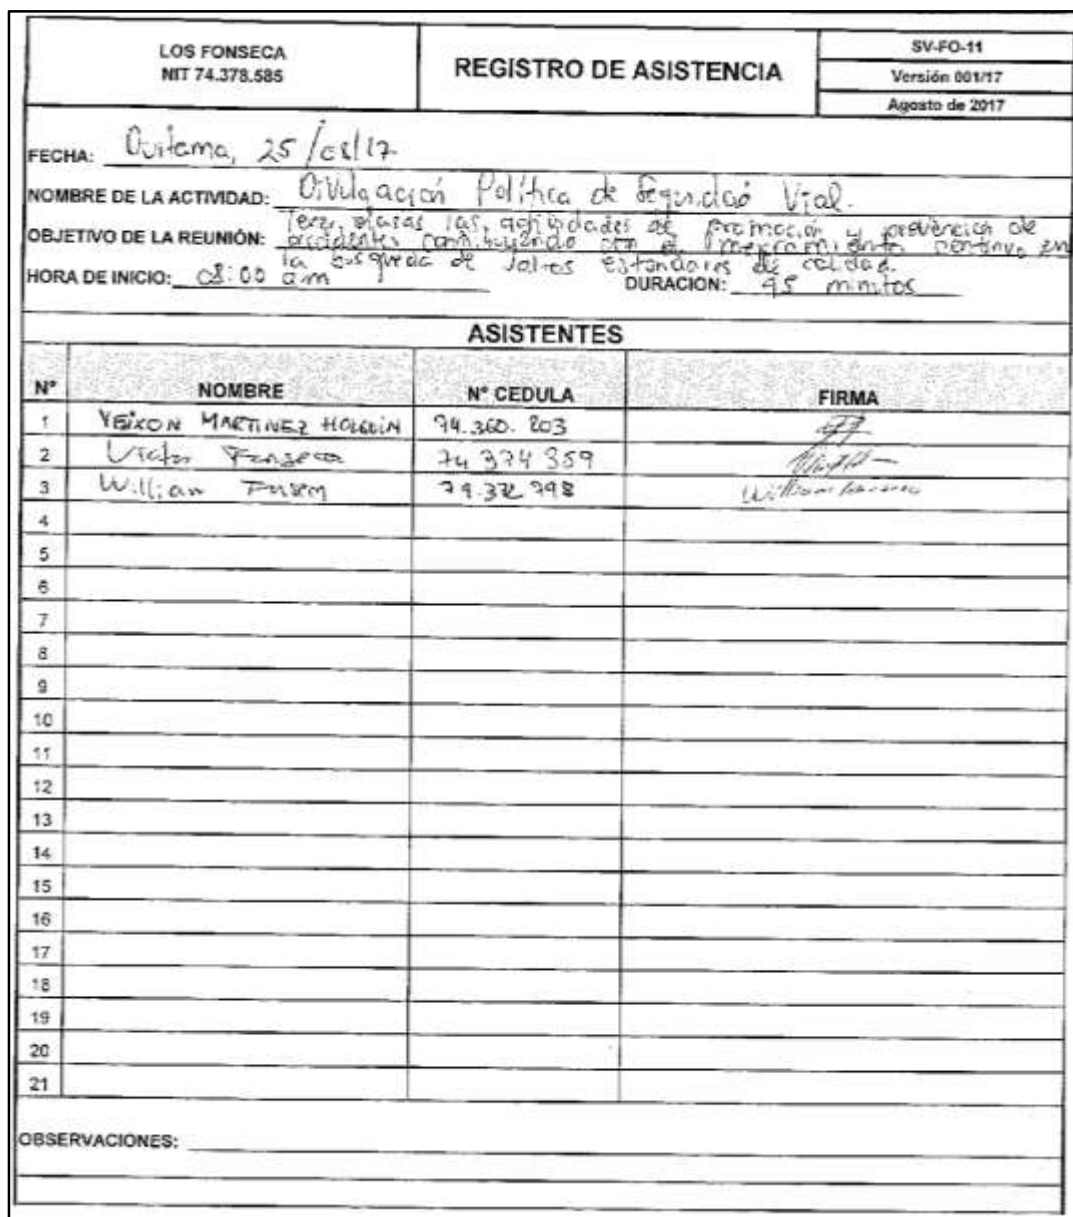 LOS FONSECA
NIT 74.378.585
REGISTRO DE ASISTENCIA
SV-FO-11
Versión 001/17
Agosto de 2017
FECHA: Duitama, 25/08/17
NOMBRE DE LA ACTIVIDAD: Divulgación Política de Seguridad Vial.
Tener claras las actividades de promoción y prevención de
OBJETIVO DE LA REUNIÓN: accidentes contribuyendo con el mejoramiento continuo en
la busqueda de altos estandares de calidad.
HORA DE INICIO: 08:00 am DURACION: 45 minutos
ASISTENTES
N° NOMBRE N° CEDULA FIRMA
1 YEIXON MARTINEZ HOLGUIN 74.360.203
2 Fonseca 74 374 359
3 William 74.372.798 William
4
5
6
7
8
9
10
11
12
13
14
15
16
17
18
19
20
21
OBSERVACIONES: